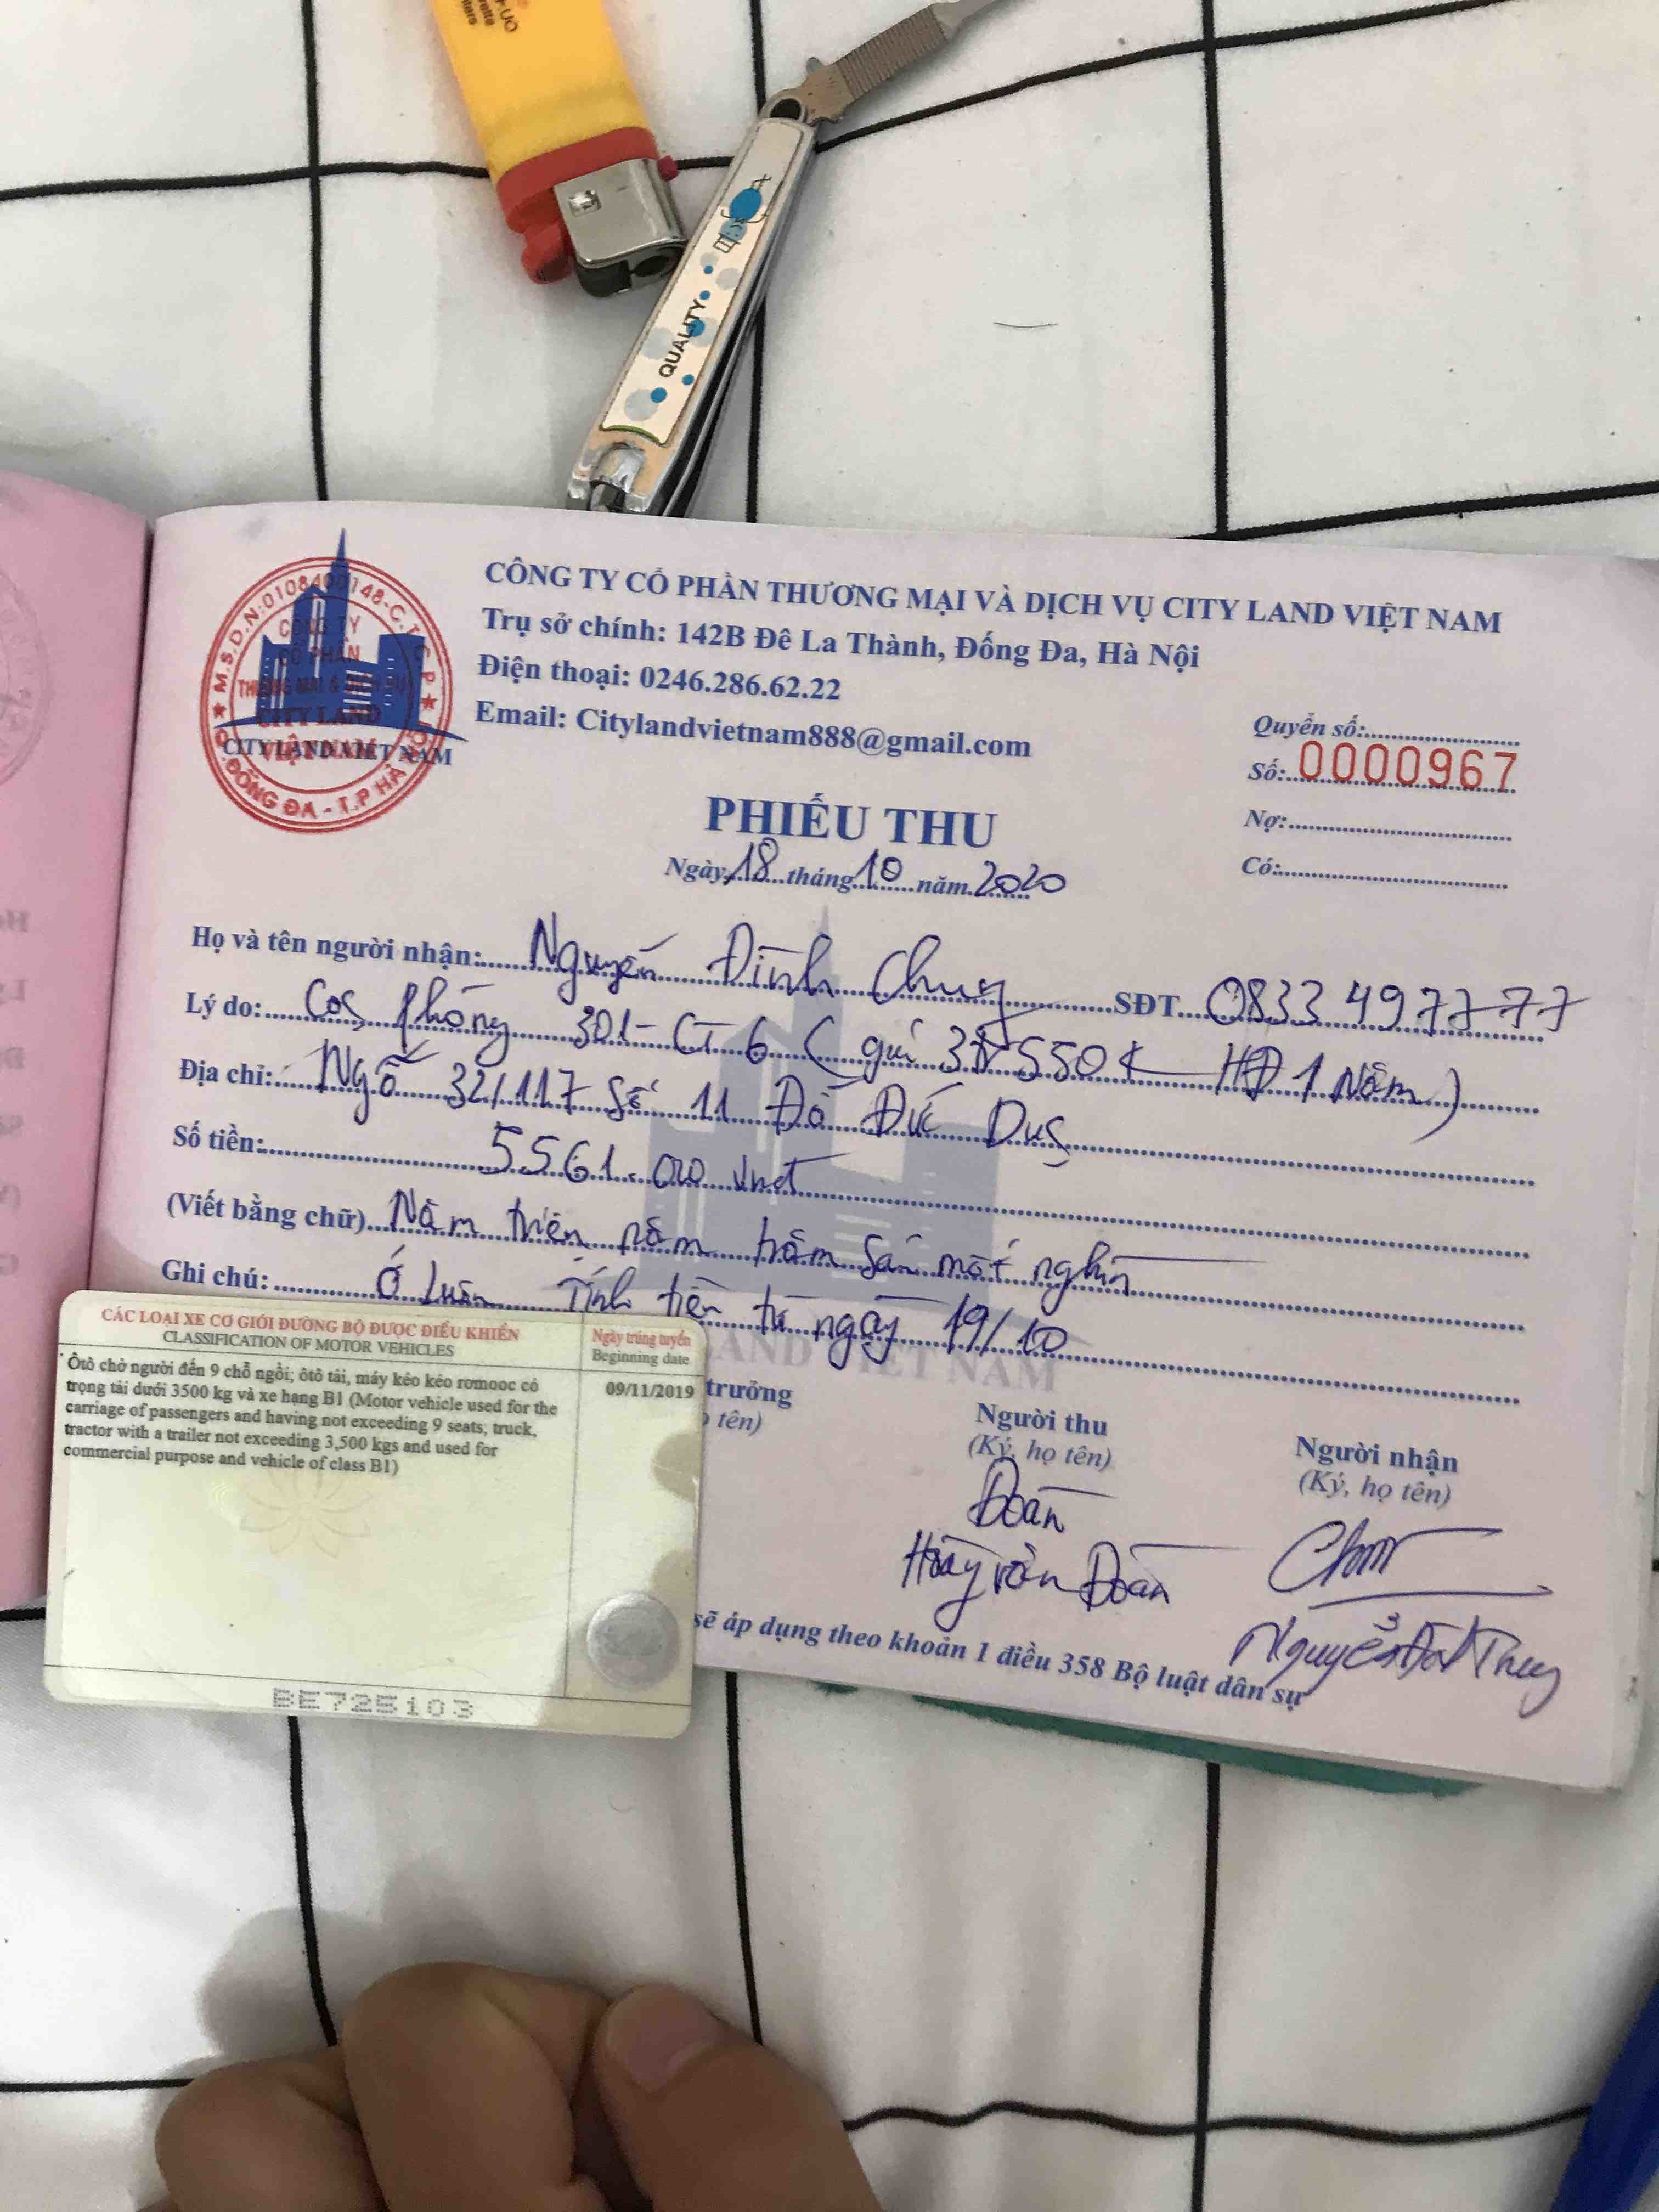 QUALITY
M.S.D.N:0108409148-C.T.C.P
CÔNG TY
CỔ PHẦN
THƯƠNG MẠI & DỊCH VỤ
CITY LAND
VIỆT NAM
Q.ĐỐNG ĐA - T.P HÀ
CITY LAND VIET NAM
CÔNG TY CỔ PHẦN THƯƠNG MẠI VÀ DỊCH VỤ CITY LAND VIỆT NAM
Trụ sở chính: 142B Đê La Thành, Đống Đa, Hà Nội
Điện thoại: 0246.286.62.22
Email: Citylandvietnam888@gmail.com
Quyển số:
Số: 0000967
Nợ:
Có:
PHIẾU THU
Ngày 18 tháng 10 năm 2020
Họ và tên người nhận: Nguyễn Đình Chuy SĐT 0833497777
Lý do: Cọc phòng 301-CT6 ( giá 3tr550K HĐ 1 Năm)
Địa chỉ: Ngõ 32/117 Số 11 Đỗ Đức Dục
Số tiền: 5561.000 vnđ
(Viết bằng chữ) Năm triệu năm trăm sáu mốt nghìn
Ghi chú: Ở Luôn Tính tiền từ ngày 19/10
LAND VIET NAM
trưởng
tên)
Người thu
(Ký, họ tên)
Đoàn
Văn Đoàn
Người nhận
(Ký, họ tên)
Nguyễn
sẽ áp dụng theo khoản 1 điều 358 Bộ luật dân sự
CÁC LOẠI XE CƠ GIỚI ĐƯỜNG BỘ ĐƯỢC ĐIỀU KHIỂN
CLASSIFICATION OF MOTOR VEHICLES
Ngày trúng tuyển
Beginning date
Ôtô chở người đến 9 chỗ ngồi; ôtô tải, máy kéo kéo romooc có
trọng tải dưới 3500 kg và xe hạng B1 (Motor vehicle used for the
carriage of passengers and having not exceeding 9 seats; truck,
tractor with a trailer not exceeding 3,500 kgs and used for
commercial purpose and vehicle of class B1)
09/11/2019
BE725103